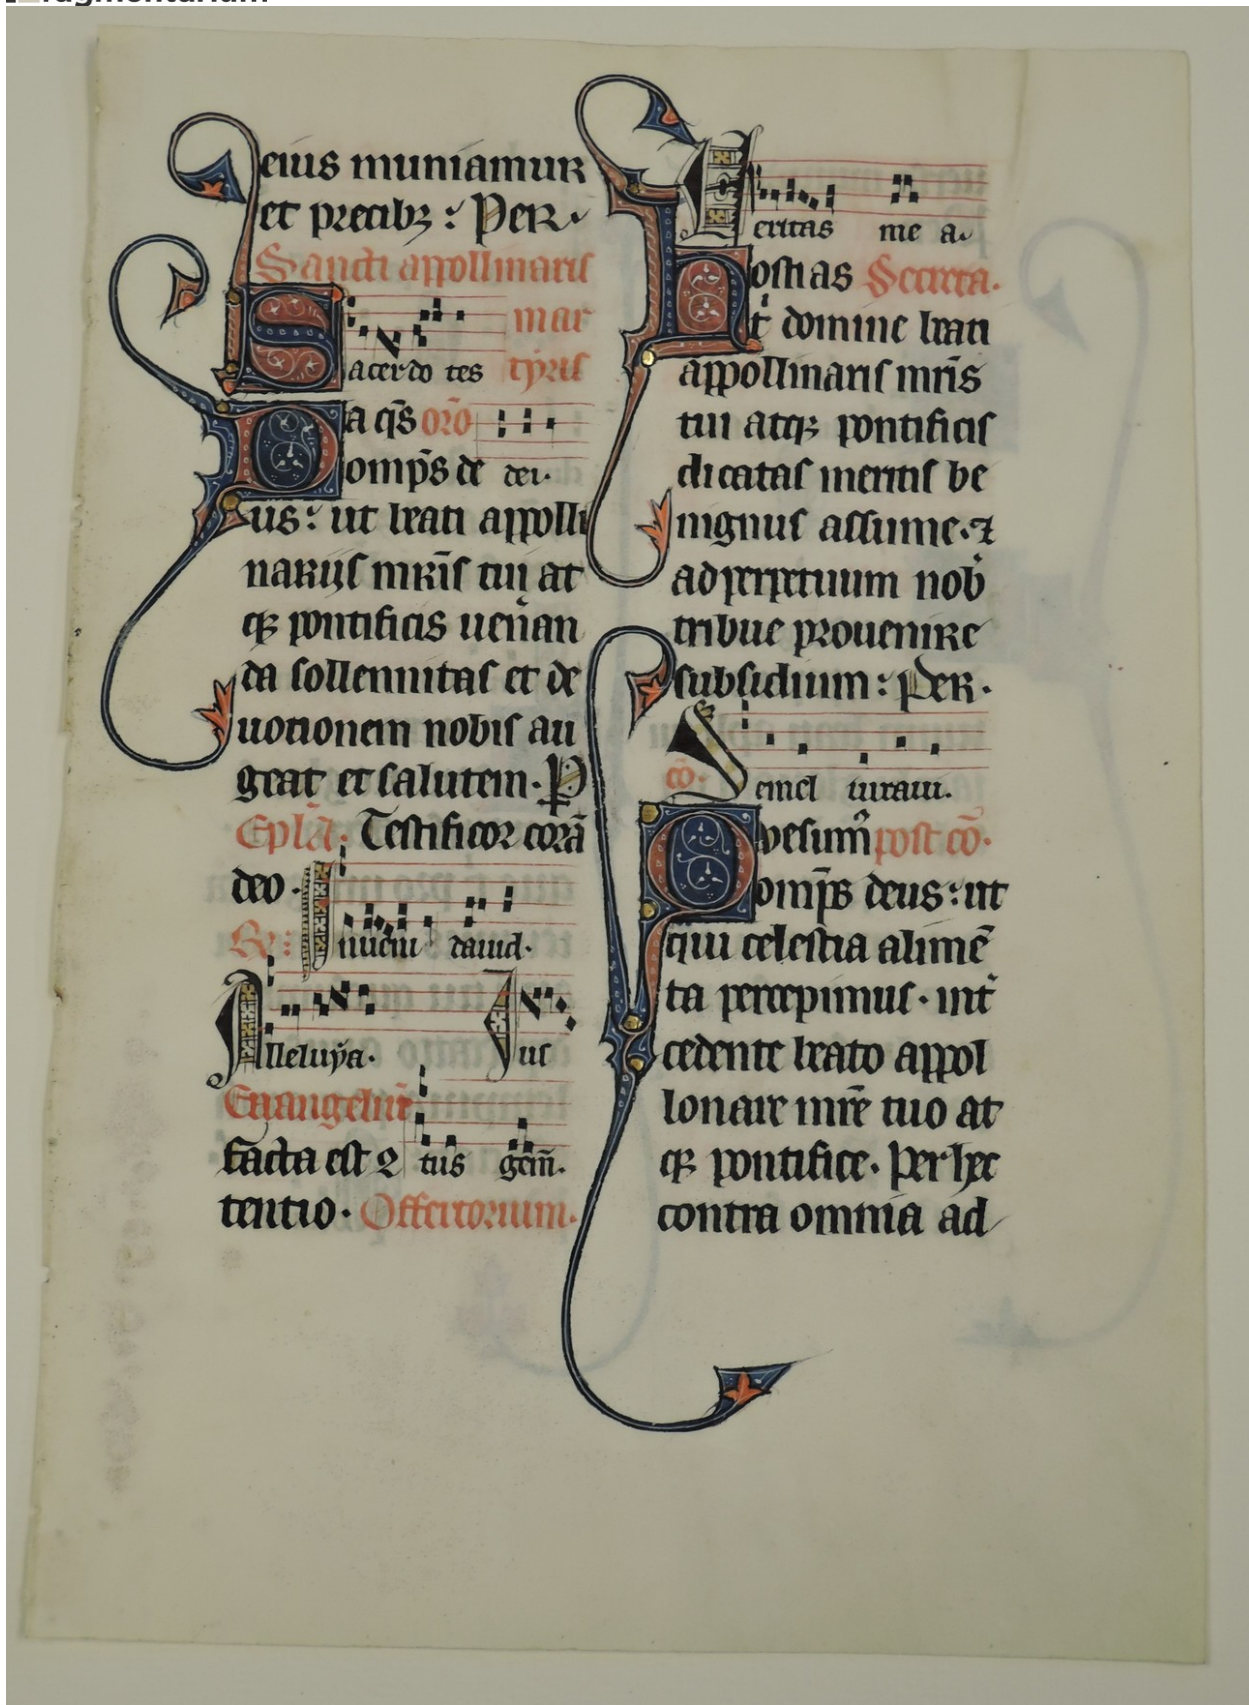 eius muniamur
et precibꝫ : Per .
Sancti appollinaris
mar
Sacerdo tes tyris
Da q̄s or̄o
omp̄s de dei .
us : ut beati appolli
narijs mr̄is tui at
qꝫ pontificis ueñan
da sollennitas et de
uotionem nobis au
geat et salutem . P
Epl̄a . Testificor corā
deo .
R : Inueni dauid .
Alleluya . Iu
Euangeliū
facta est 2 tus gem̄ .
tentio . Offertorium .
Ueritas me a .
Hostias Secreta .
t domine beati
appollinaris mr̄is
tui atqꝫ pontificis
dicatas meritis be
nignus assume . ⁊
ad perpetuum nob
tribue prouenire
subsidium : Per .
cō . Semel iuraui .
Q̄uesum̄ post cō .
omp̄s deus : ut
qui celestia alimē
ta percepimus . int̄
cedente beato appol
lonare mr̄e tuo at
qꝫ pontifice . Per hec
contra omnia ad